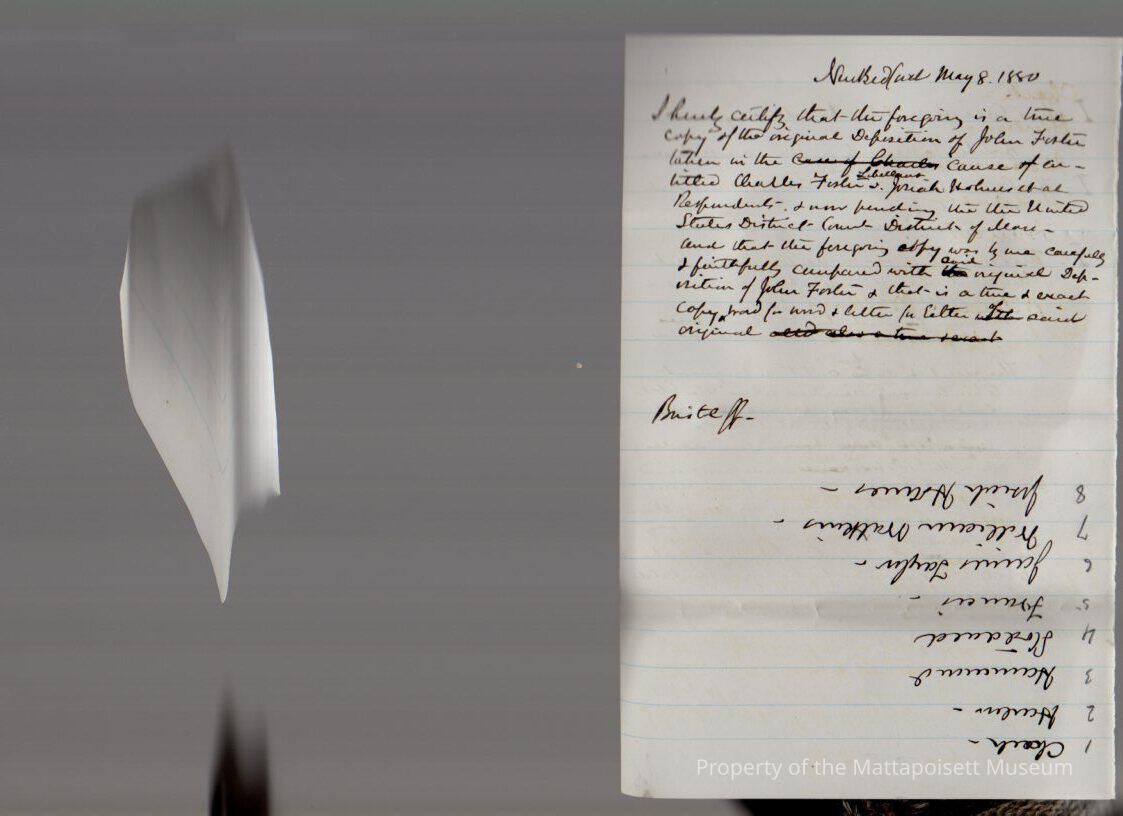 New Bedford May 8. 1880
I hereby certify that the foregoing is a true
copy of the original Deposition of John Foster
taken in the case of Charles cause of en-
titled Charles Foster Libellant v. Josiah Holmes et al
Respondents. & now pending the the United
States District Court District of Mass-
and that the foregoing copy was by me carefully
& faithfully compared with the said original Dep-
osition of John Foster & that is a true & exact
copy, word for word & letter for letter of the said
original and also a true & exact
Brist ff-
8 Josiah Holmes -
7 William Watkins -
6 James Taylor -
5 Francis -
4
3 Hammond
2
1 Clark -
Property of the Mattapoisett Museum